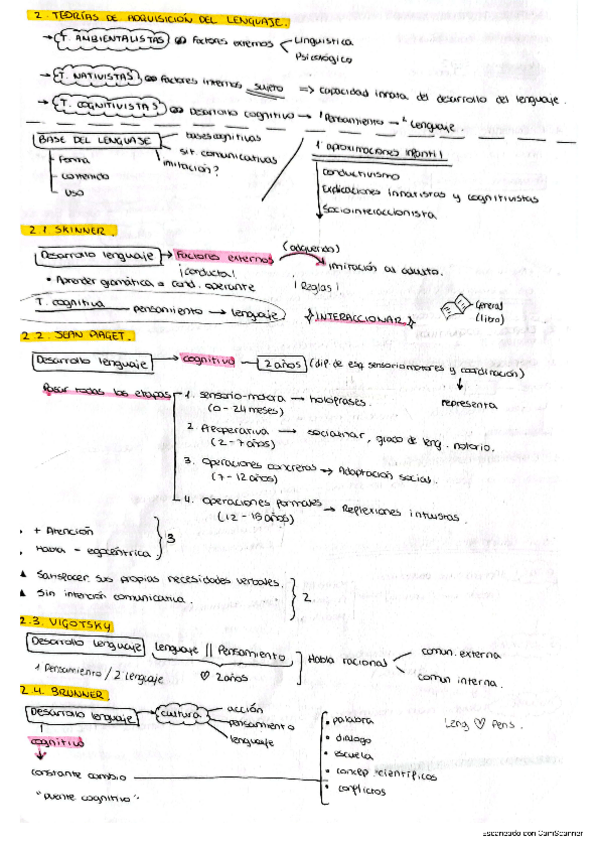 2. TEORÍAS DE ADQUISICIÓN DEL LENGUAJE.
→ T. AMBIENTALISTAS Factores externos Linguistica
Psicológico
→ T. NATIVISTAS Factores internos sujeto => capacidad innata del desarrollo del lenguaje.
→ T. COGNITIVISTAS Desarrollo cognitivo → 1º Pensamiento → 2º Lenguaje.
BASE DEL LENGUAJE bases cognitivas
sit. comunicativas
imitación?
Forma
contenido
uso
1º aproximaciones infantil
conductivismo
Explicaciones innatistas y cognitivistas
Sociointeraccionista
2.1 SKINNER.
Desarrollo lenguaje → Factores externos (adquerido) imitación al adulto.
¡conducta!
• Aprender gramática a cond. operante ¡Reglas!
T. cognitiva pensamiento → lenguaje INTERACCIONAR General
(libro)
2.2. JEAN PIAGET.
Desarrollo lenguaje → cognitivo 2 años (dip. de esq. sensoriomotores y coordinación)
representa
Pasar todas las etapas
1. sensorio-motora → holofrases.
(0-24 meses)
2. Preoperativa → socializar, grado de leng. notorio.
(2-7 años)
3. Operaciones concretas → Adaptación social.
(7-12 años)
4. Operaciones formales → Reflexiones intuistas.
(12-15 años)
+ Atención
Habla - egocéntrica. 3
▲ Satisfacer sus propias necesidades verbales.
▲ Sin intención comunicativa. 2.
2.3. VIGOTSKY
Desarrollo lenguaje Lenguaje || Pensamiento Habla racional comun. externa
comun interna.
1 Pensamiento / 2 lenguaje ♡ 2 años
2.4. BRUNNER.
Desarrollo lenguaje → cultura acción
pensamiento
lenguaje
cognitivo
constante cambio
"puente cognitivo".
• palabra
• dialogo
• escuela
• concep. científicos
• conflictos
Leng ♡ Pens.
Escaneado con CamScanner